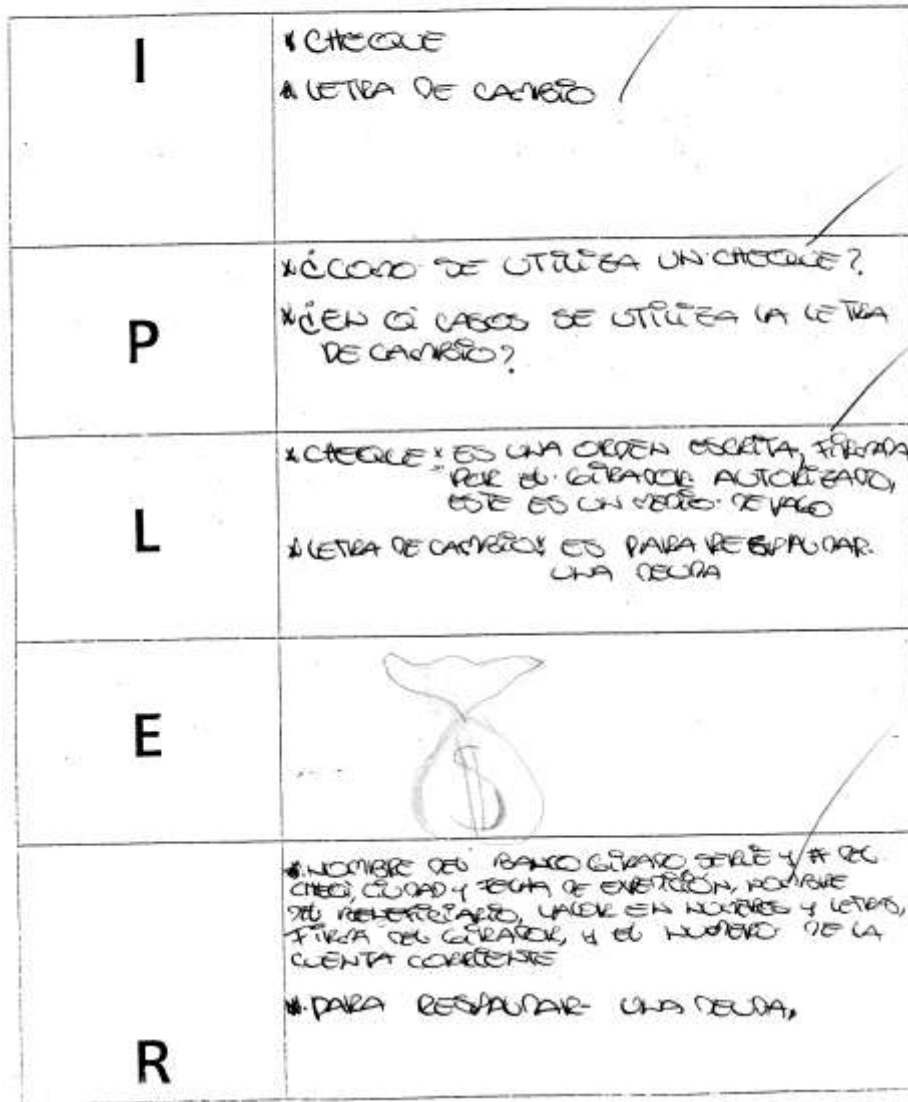 I
* CHEQUE
* LETRA DE CAMBIO
P
* ¿COMO SE UTILIZA UN CHEQUE?
* ¿EN Q CASOS SE UTILIZA LA LETRA
DE CAMBIO?
L
* CHEQUE: ES UNA ORDEN ESCRITA, FIRMADA
POR EL GIRADOR AUTORIZADO,
ESTE ES UN MEDIO DE PAGO
* LETRA DE CAMBIO: ES PARA RESPALDAR
UNA DEUDA
E
$
R
* NOMBRE DEL BANCO GIRADO, SERIE Y # DEL
CHEQ, CIUDAD Y FECHA DE EXPEDICIÓN, NOMBRE
DEL BENEFICIARIO, VALOR EN NUMEROS Y LETRAS,
FIRMA DEL GIRADOR, Y EL NUMERO DE LA
CUENTA CORRIENTE
* PARA RESPALDAR UNA DEUDA,